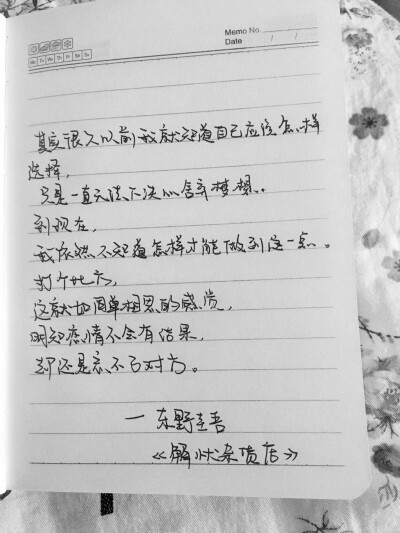 Memo No.
Date / /
Mo Tu We Th Fr Sa Su
其实很久以前我就知道自己应该怎样
选择,
只是一直无法下决心舍弃梦想。
到现在,
我依然不知道怎样才能做到这一点。
打个比方,
这就如同单相思的感觉,
明知恋情不会有结果,
却还是忘不了对方。
— 东野圭吾
《解忧杂货店》